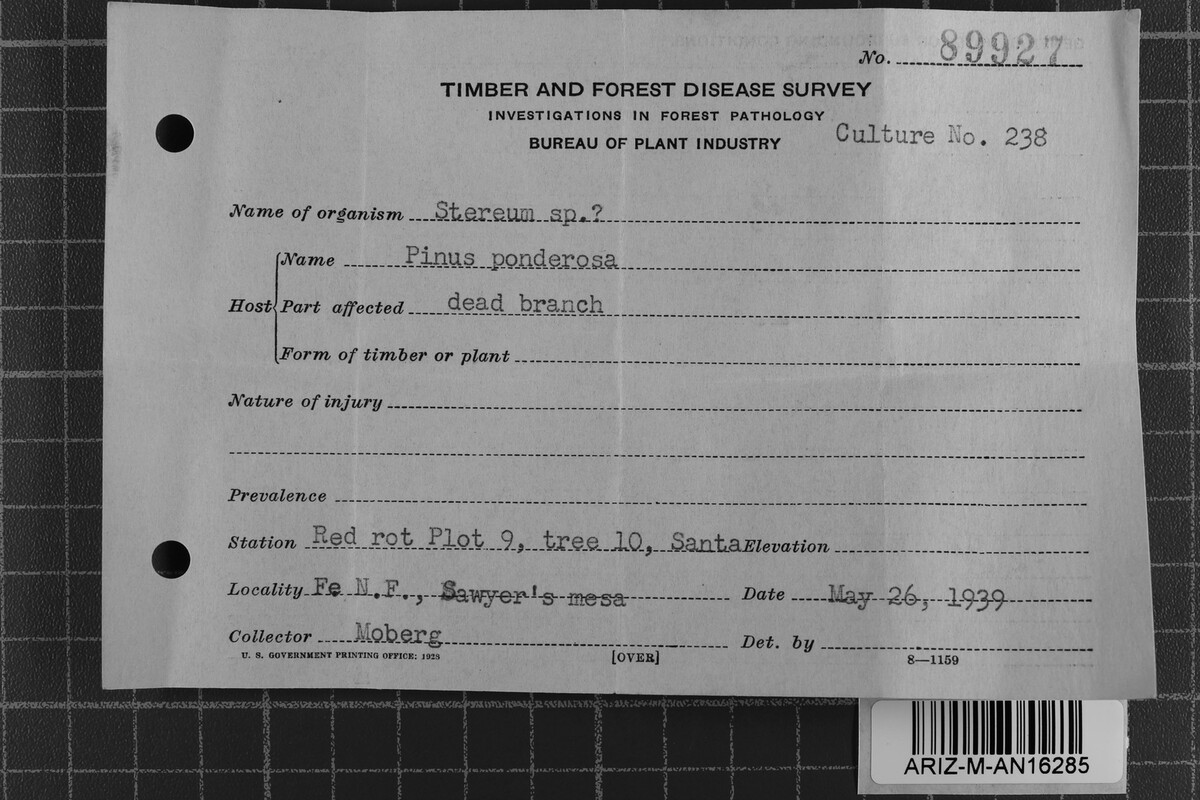 No. 89927
TIMBER AND FOREST DISEASE SURVEY
INVESTIGATIONS IN FOREST PATHOLOGY
BUREAU OF PLANT INDUSTRY
Culture No. 238
Name of organism Stereum sp.?
Name Pinus ponderosa
Host Part affected dead branch
Form of timber or plant
Nature of injury
Prevalence
Station Red rot Plot 9, tree 10, Santa Elevation
Locality Fe N.F., Sawyer's mesa Date May 26, 1939
Collector Moberg Det. by
U. S. GOVERNMENT PRINTING OFFICE: 1928 [OVER] 8—1159
ARIZ-M-AN16285